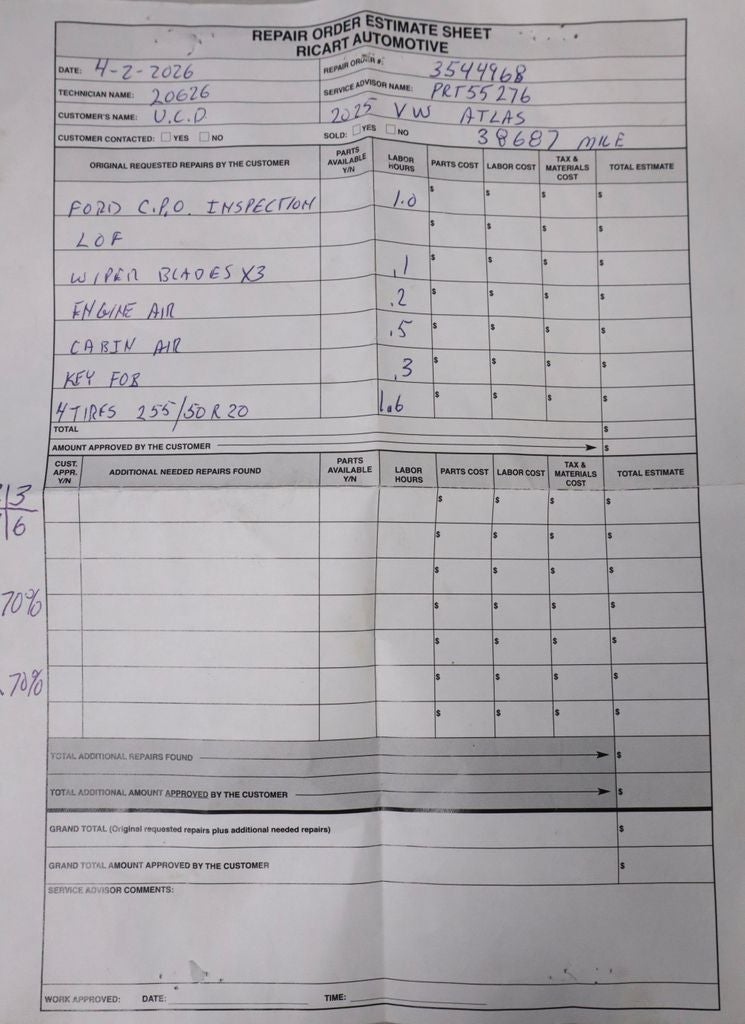 REPAIR ORDER ESTIMATE SHEET
RICART AUTOMOTIVE
DATE: 4-2-2026 REPAIR ORDER #: 3544968
TECHNICIAN NAME: 20626 SERVICE ADVISOR NAME: PRT55276
CUSTOMER'S NAME: U.C.D 2025 VW ATLAS
CUSTOMER CONTACTED: YES NO SOLD: YES NO 38687 MILE
ORIGINAL REQUESTED REPAIRS BY THE CUSTOMER PARTS AVAILABLE Y/N LABOR HOURS PARTS COST LABOR COST TAX & MATERIALS COST TOTAL ESTIMATE
FORD C.P.O. INSPECTION 1.0 $ $ $ $
LOF $ $ $ $
WIPER BLADES X3 .1 $ $ $ $
ENGINE AIR .2 $ $ $ $
CABIN AIR .5 $ $ $ $
KEY FOB .3 $ $ $ $
4 TIRES 255/50R20 1.6 $ $ $ $
TOTAL $
AMOUNT APPROVED BY THE CUSTOMER $
CUST. APPR. Y/N ADDITIONAL NEEDED REPAIRS FOUND PARTS AVAILABLE Y/N LABOR HOURS PARTS COST LABOR COST TAX & MATERIALS COST TOTAL ESTIMATE
3 $ $ $ $
6 $ $ $ $
$ $ $ $
70% $ $ $ $
$ $ $ $
70% $ $ $ $
$ $ $ $
TOTAL ADDITIONAL REPAIRS FOUND $
TOTAL ADDITIONAL AMOUNT APPROVED BY THE CUSTOMER $
GRAND TOTAL (Original requested repairs plus additional needed repairs) $
GRAND TOTAL AMOUNT APPROVED BY THE CUSTOMER $
SERVICE ADVISOR COMMENTS:
WORK APPROVED: DATE: TIME: